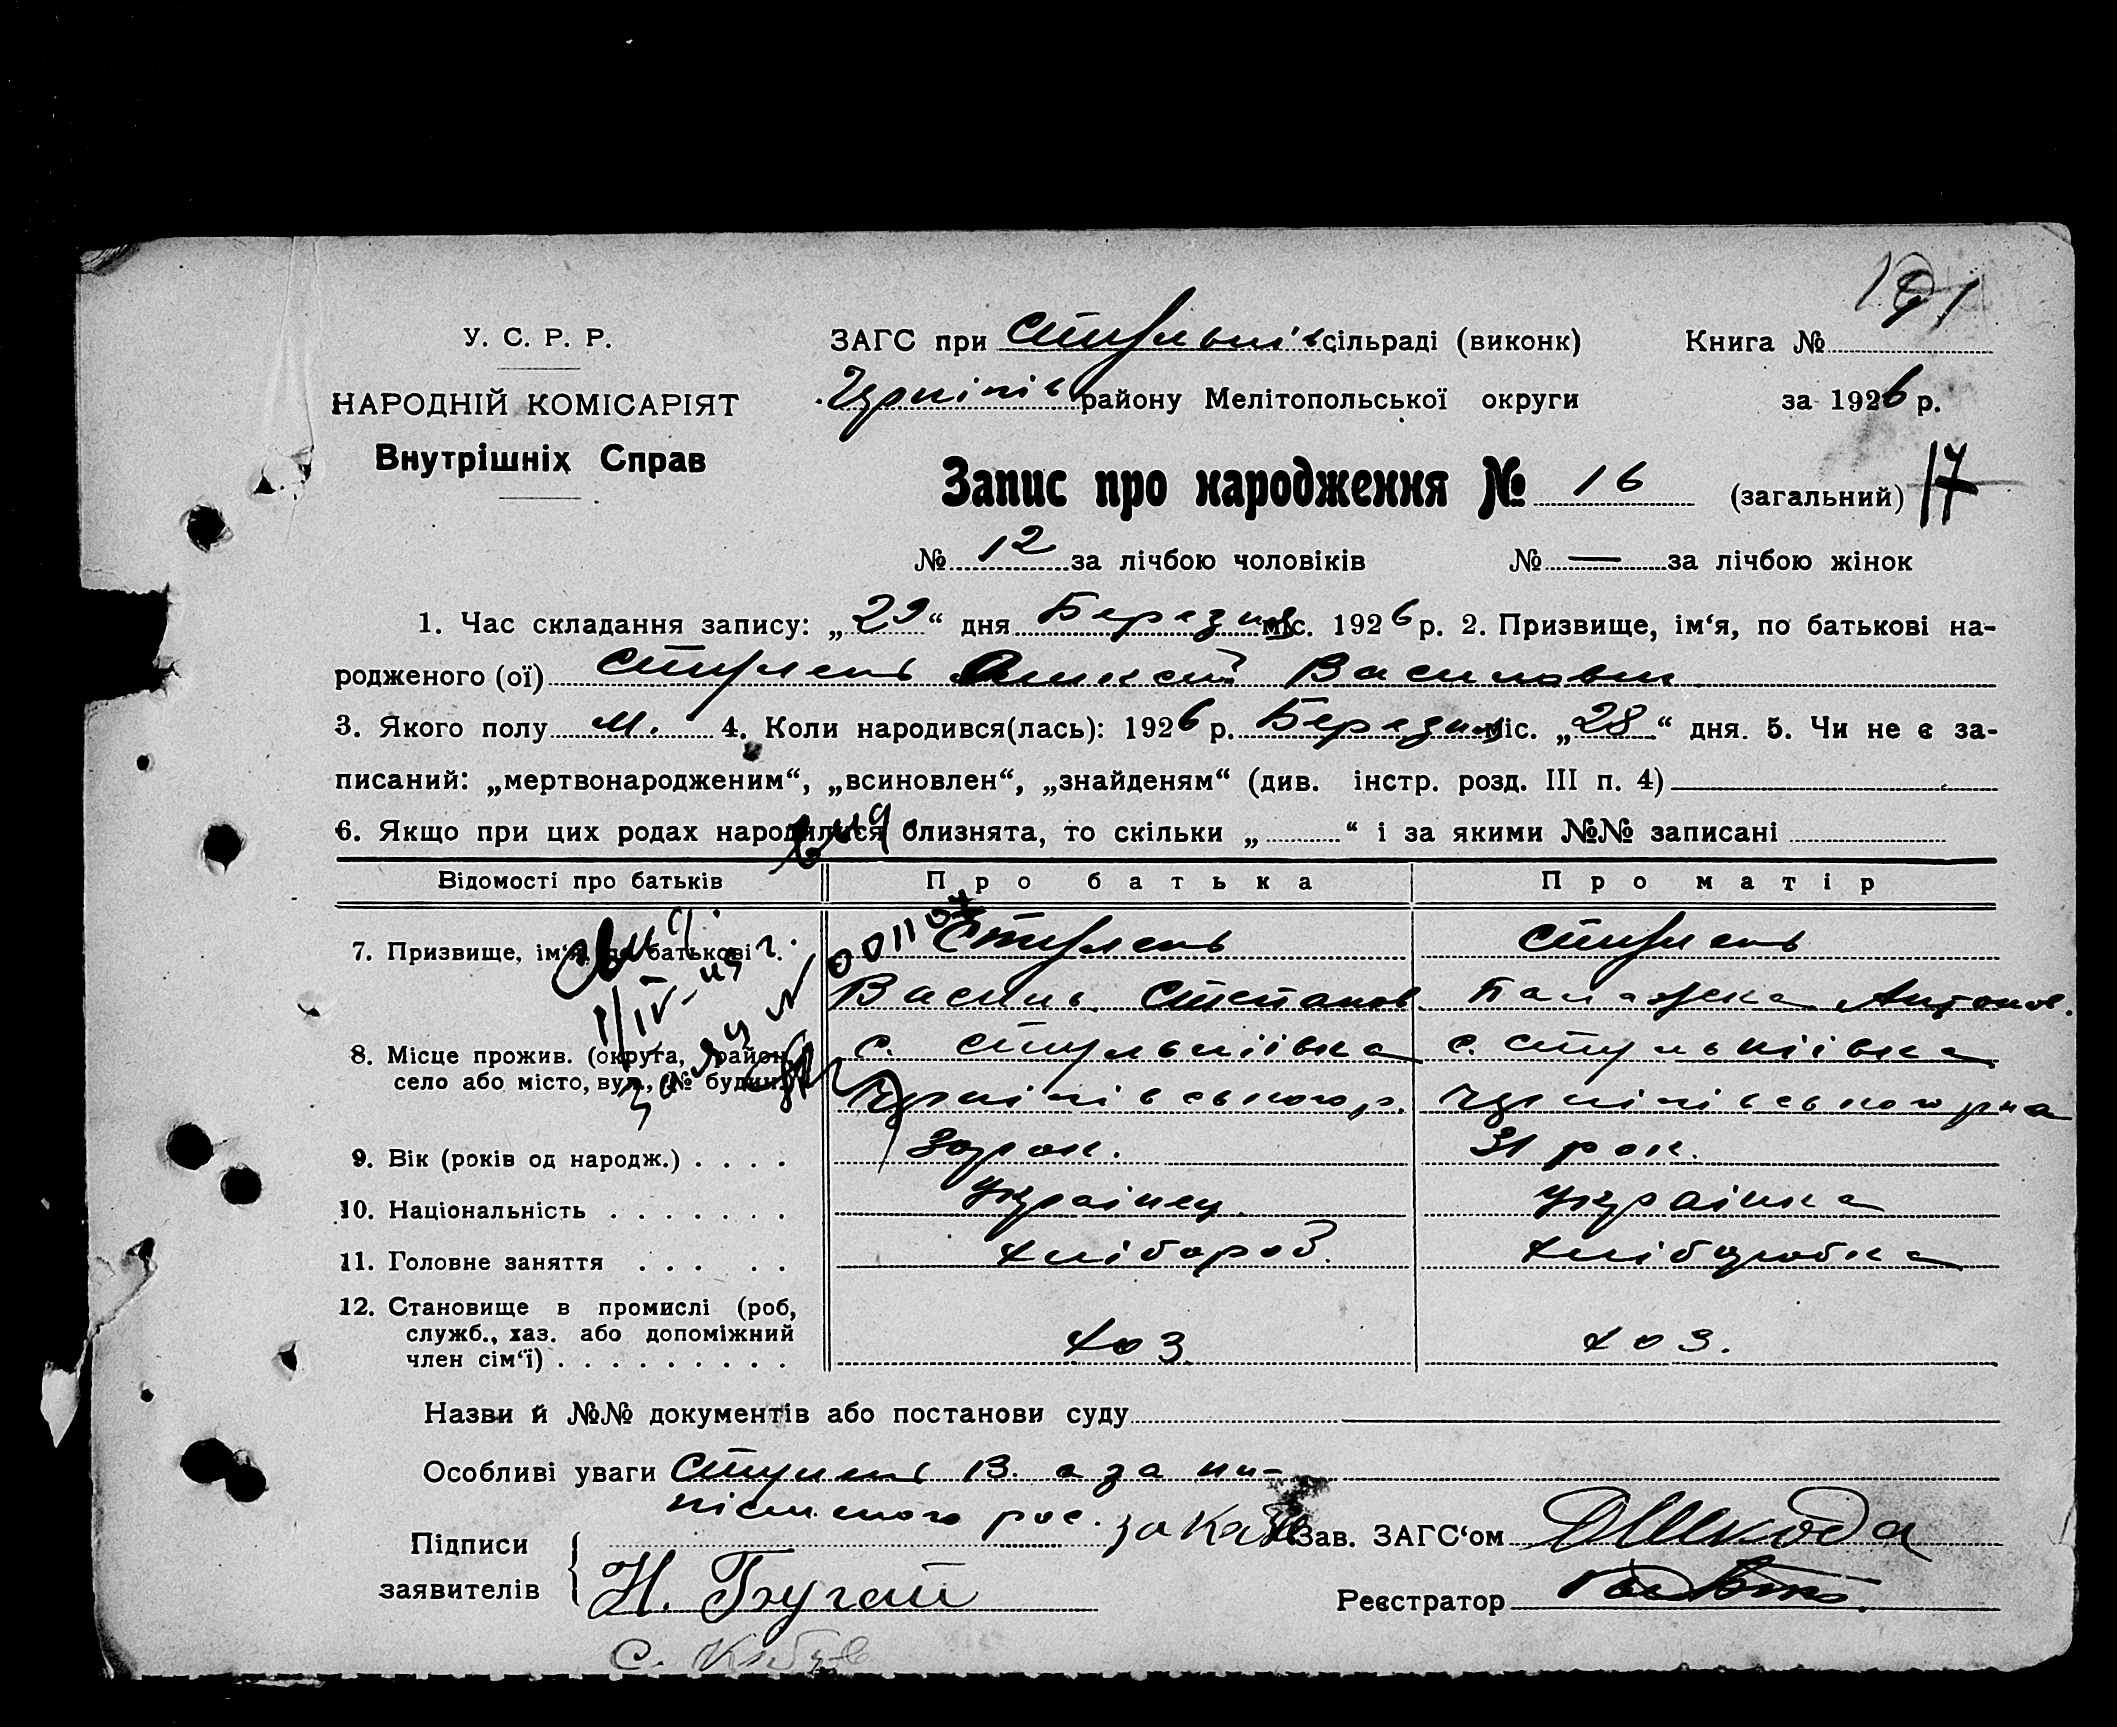 У. С. Р. Р.
НАРОДНІЙ КОМІСАРІЯТ
Внутрішніх Справ
ЗАГС при сільраді (виконк)
Книга №
району Мелітопольської округи
за 1926 р.
Запис про народження № 16 (загальний) 17
№ 12 за лічбою чоловіків № — за лічбою жінок
1. Час складання запису: „29“ дня Березня міс. 1926 р. 2. Призвище, ім‘я, по батькові на-
родженого (ої) Василевич
3. Якого полу м. 4. Коли народився(лась): 1926 р. Березня міс. „28“ дня. 5. Чи не є за-
писаний: „мертвонародженим“, „всиновлен“, „знайденям“ (див. інстр. розд. III п. 4)
6. Якщо при цих родах народилися близнята, то скільки „ “ і за якими №№ записані
Відомості про батьків Про батька Про матір
7. Призвище, ім‘я, по батькові
Василь Степанов Палажка Антонов.
8. Місце прожив. (округа, район, с. с.
село або місто, вул., № будин.)
9. Вік (років од народж.) . . . . 30 рок. 31 рок.
10. Національність . . . . . . . Українец Українка
11. Головне заняття . . . . . хлібороб. хліборобка
12. Становище в промислі (роб,
служб., хаз. або допоміжний
член сім‘ї) . . . . . . . . . хоз. хоз.
Назви й №№ документів або постанови суду
Особливі уваги В. а за не-
пісьменого рос.
Підписи
заявителів
Зав. ЗАГС‘ом ДШкода
Н. Бугай
Реєстратор